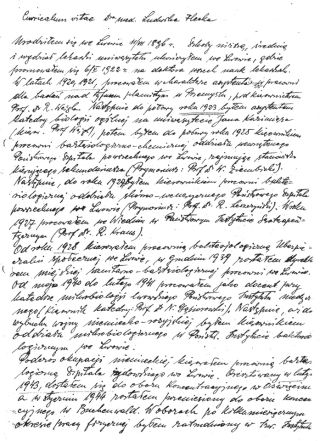 Curriculum vitae Dr med. Ludwika Flecka
Urodziłem się we Lwowie 11/VII 1896 r. Szkoły niższą, średnią
i wydział lekarski uniwersytetu ukończyłem we Lwowie, gdzie
promowałem się 1922 r. na doktora wszech nauk lekarskich.
W latach 1920, 1921, pracowałem w charakterze asystenta w pracowni
dla badań nad tyfusem plamistym w Przemyślu, pod kierownictwem
Prof. Dr R. Weigla. Następnie do połowy roku 1923 byłem asystentem
katedry biologii ogólnej na uniwersytecie Jana Kazimierza
(kier. Prof. Weigl), potem byłem do połowy roku 1925 kierownikiem
pracowni bakteriologiczno-chemicznej oddziału wewnętrznego
Państwowego Szpitala powszechnego we Lwowie, zajmując stanowisko
sekundariusza (Prymariusz: Prof. Dr W.
Następnie, do roku byłem kierownikiem pracowni bakte-
riologicznej oddziału skórno-wenerycznego Państwowego Szpitala
powszechnego we Lwowie (Prymariusz: Prof. Dr R. Leszczyński). W roku
1927 pracowałem we Wiedniu w Państwowym Instytucie Seroterapeu-
tycznym (Prof. Dr R. Kraus).
Od roku 1928 kierowałem pracownią bakteriologiczną Ubezpie-
czalni społecznej we Lwowie, w grudniu 1939 zostałem dyrekto-
rem miejskiej sanitarno-bakteriologicznej pracowni we Lwowie.
Od maja 1940 do lutego 1941 pracowałem jako docent przy
katedrze mikrobiologii lwowskiego Państwowego Instytutu medycz-
nego (kierownik katedry: Prof. Dr Następnie, aż do
wybuchu wojny niemiecko-rosyjskiej byłem kierownikiem
oddziału mikrobiologicznego w Państw. Instytucie bakterio-
logicznym we Lwowie.
Podczas okupacji niemieckiej kierowałem pracownią bakte-
riologiczną Szpitala żydowskiego we Lwowie. Aresztowany w lutym
1943, dostałem się do obozu Koncentracyjnego w Oświęcimiu
a w styczniu 1944 zostałem przeniesiony do obozu koncen-
cyjnego w Buchenwald. W obozach po kilkumiesięcznym
okresie pracy fizycznej byłem zatrudniony w tzw. Instytucie